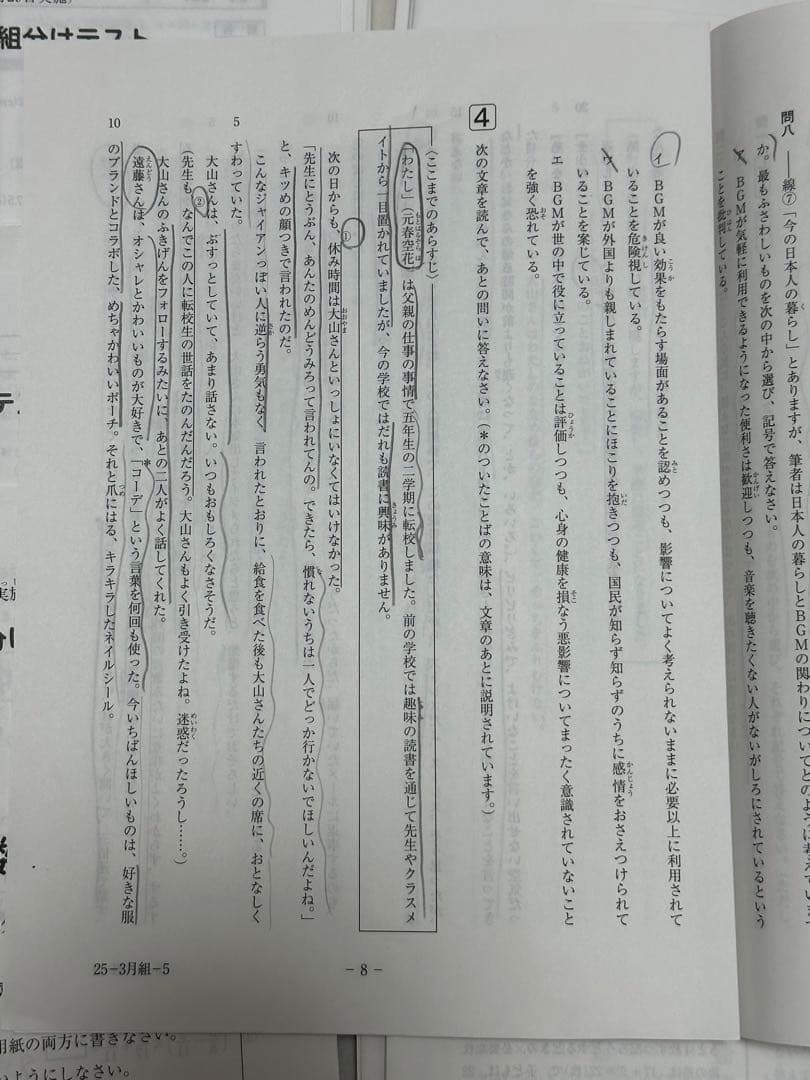 問八 ――線⑦「今の日本人の暮らし」とありますが、筆者は日本人の暮らしとBGMの関わりについてどのように考えています
か。最もふさわしいものを次の中から選び、記号で答えなさい。
ア BGMが気軽に利用できるようになった便利さは歓迎しつつも、音楽を聴きたくない人がないがしろにされているという
ことを批判している。
イ BGMが良い効果をもたらす場面があることを認めつつも、影響についてよく考えられないままに必要以上に利用されて
いることを危険視している。
ウ BGMが外国よりも親しまれていることにほこりを抱きつつも、国民が知らず知らずのうちに感情をおさえつけられて
いることを案じている。
エ BGMが世の中で役に立っていることは評価しつつも、心身の健康を損なう悪影響についてまったく意識されていないこと
を強く恐れている。
4 次の文章を読んで、あとの問いに答えなさい。(*のついたことばの意味は、文章のあとに説明されています。)
(ここまでのあらすじ)
「わたし」(元春空花)は父親の仕事の事情で五年生の二学期に転校しました。前の学校では趣味の読書を通じて先生やクラスメ
イトから一目置かれていましたが、今の学校ではだれも読書に興味がありません。
次の日からも、①休み時間は大山さんといっしょにいなくてはいけなかった。
「先生にとうぶん、あんたのめんどうみろって言われてんの。できたら、慣れないうちは一人でどっか行かないでほしいんだよね。」
と、キツめの顔つきで言われたのだ。
こんなジャイアンっぽい人に逆らう勇気もなく、言われたとおりに、給食を食べた後も大山さんたちの近くの席に、おとなしく
5 すわっていた。
大山さんは、ぶすっとしていて、あまり話さない。いつもおもしろくなさそうだ。
(先生も、②なんでこの人に転校生の世話をたのんだんだろう。大山さんもよく引き受けたよね。迷惑だったろうし……。)
大山さんのふきげんをフォローするみたいに、あとの二人がよく話してくれた。
遠藤さんは、オシャレとかわいいものが大好きで、「*コーデ」という言葉を何回も使った。今いちばんほしいものは、好きな服
10 のブランドとコラボした、めちゃかわいいポーチ。それと爪にはる、キラキラしたネイルシール。
－8－
25－3月組－5
組分けテスト
用紙の両方に書きなさい。
ようにしなさい。